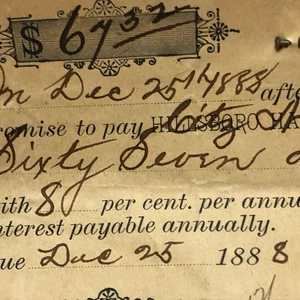 $ 67 32
On Dec 25 1488 after
promise to pay HILLSBORO HA
Sixty Seven
with 8 per cent. per annu
interest payable annually.
ue Dec 25 1888